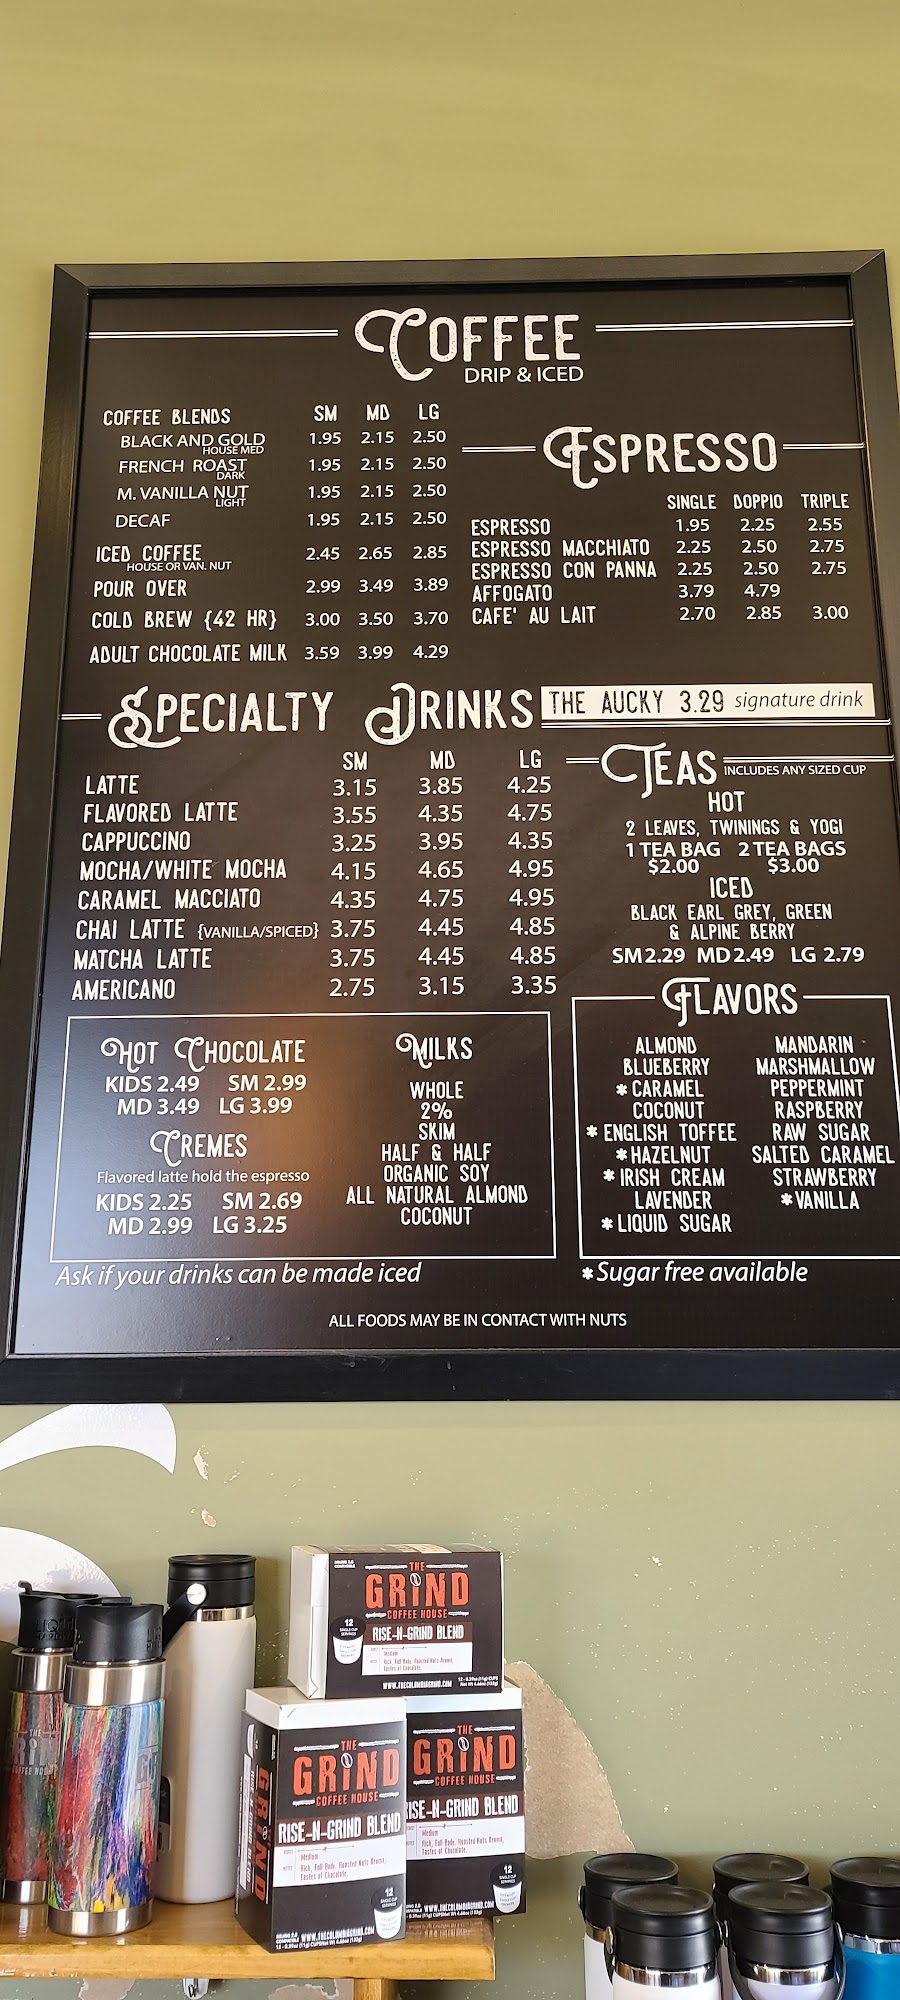 COFFEE
DRIP & ICED
COFFEE BLENDS SM MD LG
BLACK AND GOLD 1.95 2.15 2.50
HOUSE MED
FRENCH ROAST 1.95 2.15 2.50
DARK
M. VANILLA NUT 1.95 2.15 2.50
LIGHT
DECAF 1.95 2.15 2.50
ICED COFFEE 2.45 2.65 2.85
HOUSE OR VAN. NUT
POUR OVER 2.99 3.49 3.89
COLD BREW {42 HR} 3.00 3.50 3.70
ADULT CHOCOLATE MILK 3.59 3.99 4.29
ESPRESSO
SINGLE DOPPIO TRIPLE
ESPRESSO 1.95 2.25 2.55
ESPRESSO MACCHIATO 2.25 2.50 2.75
ESPRESSO CON PANNA 2.25 2.50 2.75
AFFOGATO 3.79 4.79
CAFE' AU LAIT 2.70 2.85 3.00
SPECIALTY DRINKS
THE AUCKY 3.29 signature drink
SM MD LG
LATTE 3.15 3.85 4.25
FLAVORED LATTE 3.55 4.35 4.75
CAPPUCCINO 3.25 3.95 4.35
MOCHA/WHITE MOCHA 4.15 4.65 4.95
CARAMEL MACCIATO 4.35 4.75 4.95
CHAI LATTE {VANILLA/SPICED} 3.75 4.45 4.85
MATCHA LATTE 3.75 4.45 4.85
AMERICANO 2.75 3.15 3.35
TEAS INCLUDES ANY SIZED CUP
HOT
2 LEAVES, TWININGS & YOGI
1 TEA BAG 2 TEA BAGS
$2.00 $3.00
ICED
BLACK EARL GREY, GREEN
& ALPINE BERRY
SM 2.29 MD 2.49 LG 2.79
HOT CHOCOLATE
KIDS 2.49 SM 2.99
MD 3.49 LG 3.99
CREMES
Flavored latte hold the espresso
KIDS 2.25 SM 2.69
MD 2.99 LG 3.25
MILKS
WHOLE
2%
SKIM
HALF & HALF
ORGANIC SOY
ALL NATURAL ALMOND
COCONUT
FLAVORS
ALMOND
BLUEBERRY
* CARAMEL
COCONUT
* ENGLISH TOFFEE
* HAZELNUT
* IRISH CREAM
LAVENDER
* LIQUID SUGAR
MANDARIN
MARSHMALLOW
PEPPERMINT
RASPBERRY
RAW SUGAR
SALTED CARAMEL
STRAWBERRY
* VANILLA
Ask if your drinks can be made iced
* Sugar free available
ALL FOODS MAY BE IN CONTACT WITH NUTS
THE
GRIND
COFFEE HOUSE
12
RISE-N-GRIND BLEND
Medium
Rich, Full Body, Roasted Nuts Aroma,
Tastes of Chocolate.
THE
GRIND
COFFEE HOUSE
RISE-N-GRIND BLEND
Medium
Rich, Full Body, Roasted Nuts Aroma,
Tastes of Chocolate.
12
GRIND
THE
GRIND
COFFEE HOUSE
RISE-N-GRIND BLEND
Medium
Rich, Full Body, Roasted Nuts Aroma,
Tastes of Chocolate.
12